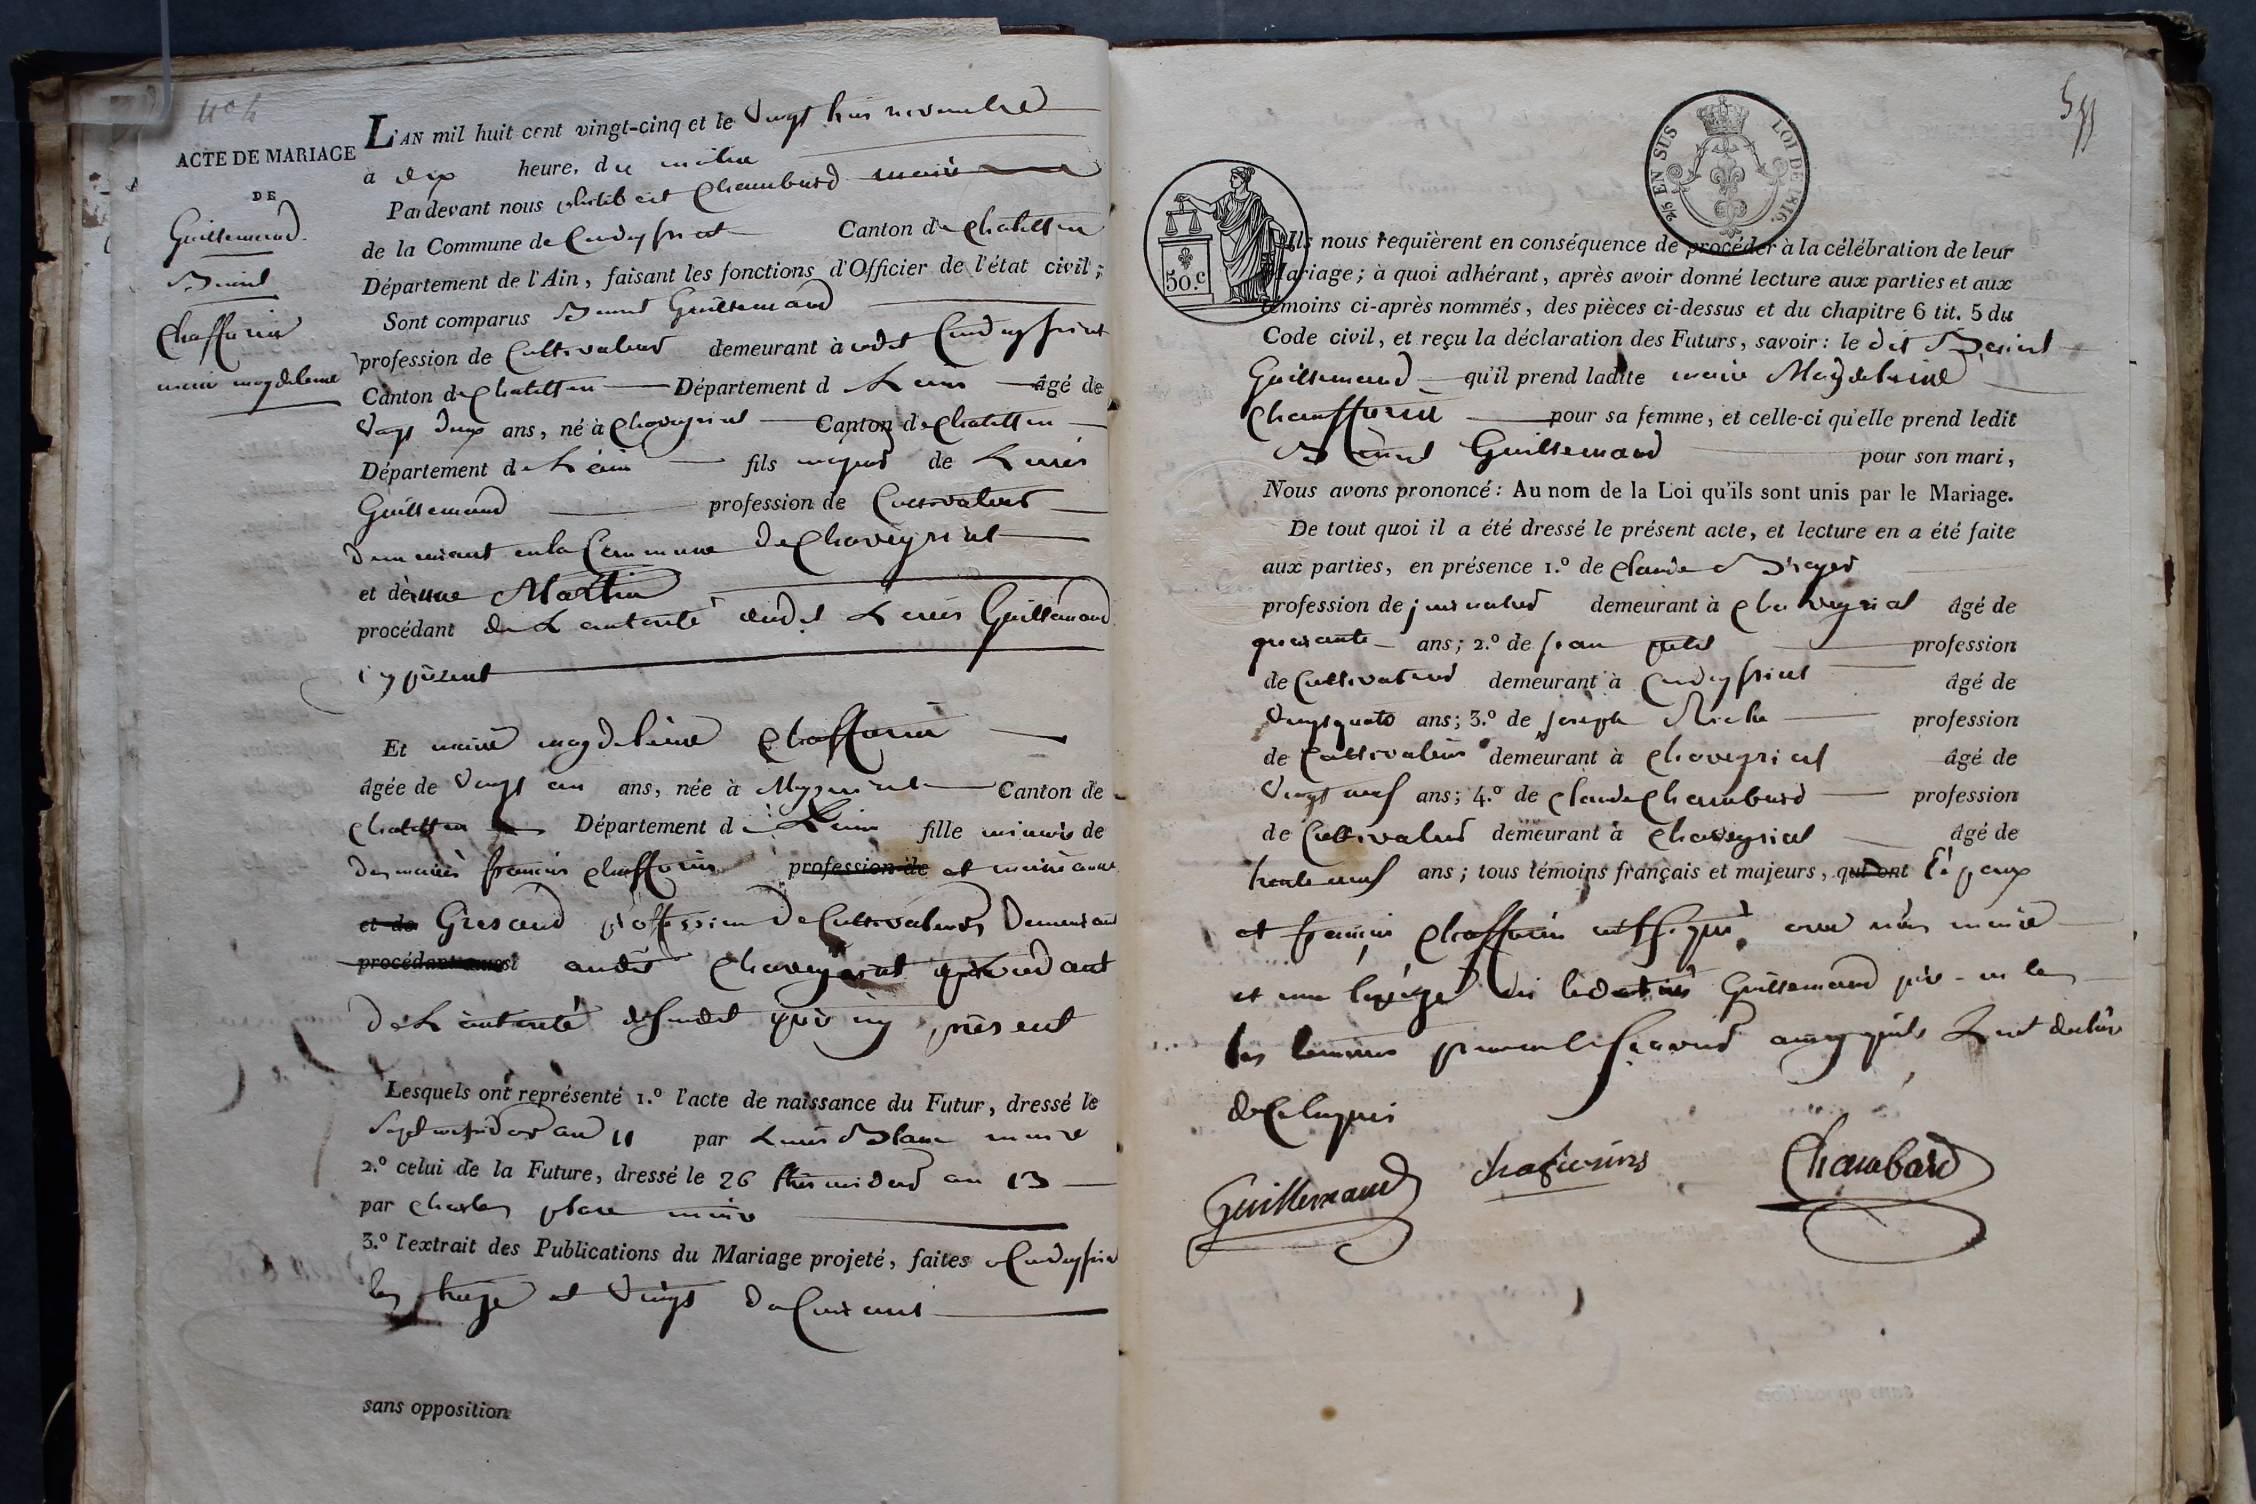 ACTE DE MARIAGE
DE
Guillemaud
Chaffurin
marie magdeleine
L'AN mil huit cent vingt-cinq et le Vingt huit novembre
à dix heure, du matin
Pardevant nous philibert Chambard maire
de la Commune de Condeyssiat Canton de Chatillon
Département de l'Ain, faisant les fonctions d'Officier de l'état civil;
Sont comparus Guillemaud
profession de Cultivateur demeurant à Condeyssiat
Canton de Chatillon Département d Lain âgé de
Vingt deux ans, né à Chaveyriat Canton de Chatillon
Département de Lain fils de Louis
Guillemaud profession de Cultivateur
demeurant en la Commune de Chaveyriat
et de Martin
procédant de Lautorité dudit Louis Guillemaud
icy présent
Et marie magdeleine Chaffurin
âgée de Vingt un ans, née à Canton de
Chatillon Département d Lain fille mineure de
des mariés françois Chaffurin profession de et marie anne
et de profession de Cultivateurs Demeurant
procédant audit Chaveyriat procedant
de Lautorité présent
Lesquels ont représenté 1.º l'acte de naissance du Futur, dressé le
an 11 par Louis Blanc maire
2.º celui de la Future, dressé le 26 thermidor an 13
par Charles place maire
3.º l'extrait des Publications du Mariage projeté, faites a Condeyssiat
les treize et Vingt du Courant
sans opposition
25 EN SUS LOI DE 1816.
50.c
Ils nous requièrent en conséquence de procéder à la célébration de leur
Mariage; à quoi adhérant, après avoir donné lecture aux parties et aux
témoins ci-après nommés, des pièces ci-dessus et du chapitre 6 tit. 5 du
Code civil, et reçu la déclaration des Futurs, savoir: le dit
Guillemaud qu'il prend ladite marie Magdeleine
Chauffurin pour sa femme, et celle-ci qu'elle prend ledit
Guillemaud pour son mari,
Nous avons prononcé: Au nom de la Loi qu'ils sont unis par le Mariage.
De tout quoi il a été dressé le présent acte, et lecture en a été faite
aux parties, en présence 1.º de Claude Broyer
profession de journalier demeurant à Chaveyriat âgé de
quarante ans; 2.º de jean profession
de Cultivateur demeurant à Condeyssiat âgé de
Vingt quatre ans; 3.º de joseph profession
de Cultivateur demeurant à Chaveyriat âgé de
Vingt neuf ans; 4.º de Claude Chambard profession
de Cultivateur demeurant à Chaveyriat âgé de
trente neuf ans; tous témoins français et majeurs, qui ont l'époux
et françois Chaffurin avec nous maire
et non l'épouse ni ledit Guillemaud père ni les
les temoins pour ne le Savoir ainsy quils Lont declaré
de Ce requis
Guillemaud Chafurins Chambard